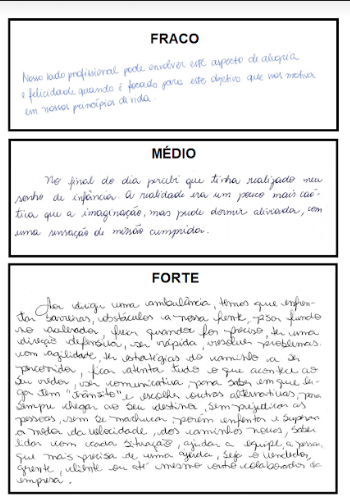 FRACO
Nosso lado profissional pode envolver este aspecto de alegria
e felicidade quando é focado para este objetivo que nos motiva
em nossos princípios de vida.
MÉDIO
No final do dia percebi que tinha realizado meu
sonho de infância. A realidade era um pouco mais caó-
tica que a imaginação, mas pude dormir aliviada, com
uma sensação de missão cumprida.
FORTE
Ao dirigir uma ambulância, temos que enfren-
tar barreiras, obstáculos a nossa frente, pisar fundo
no acelerador, frear quando for preciso, ter uma
direção defensiva, ser rápida, resolver problemas
com agilidade, ter estratégias do caminho a ser
percorrido, ficar atenta tudo o que acontece ao
seu redor, ser comunicativa para saber em que lu-
gar tem "trânsito" e escolher outras alternativas, para
sempre chegar ao seu destino, sem prejudicar as
pessoas, sem se machucar porém enfrentar e superar
o medo da velocidade, dos caminhos novos, saber
lidar com cada situação, ajudar a equipe, a pessoa
que mais precisa de uma ajuda, seja o vendedor,
gerente, cliente ou até mesmo outro colaborador da
empresa.